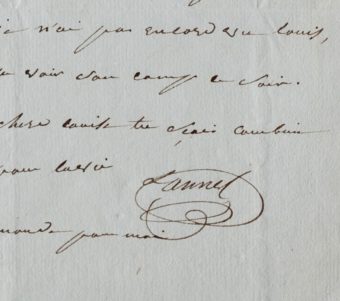 n'ai pas encore vu louis,
voir son camp ce soir.
chere louise tu scais combien
pour la vie
Lannes
pour moi